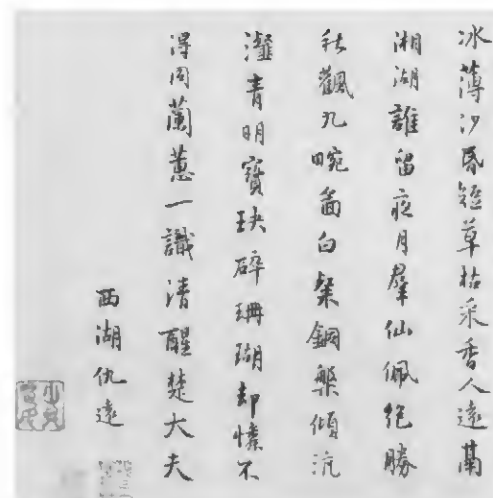 冰薄沙昏短草枯采香人遠隔
湘湖誰留夜月羣仙佩絕勝
秋飌九畹啚白粲銅槃傾沆
瀣青明寶玦碎珊瑚却憐不
得同蘭蕙一識清醒楚大夫
西湖仇遠